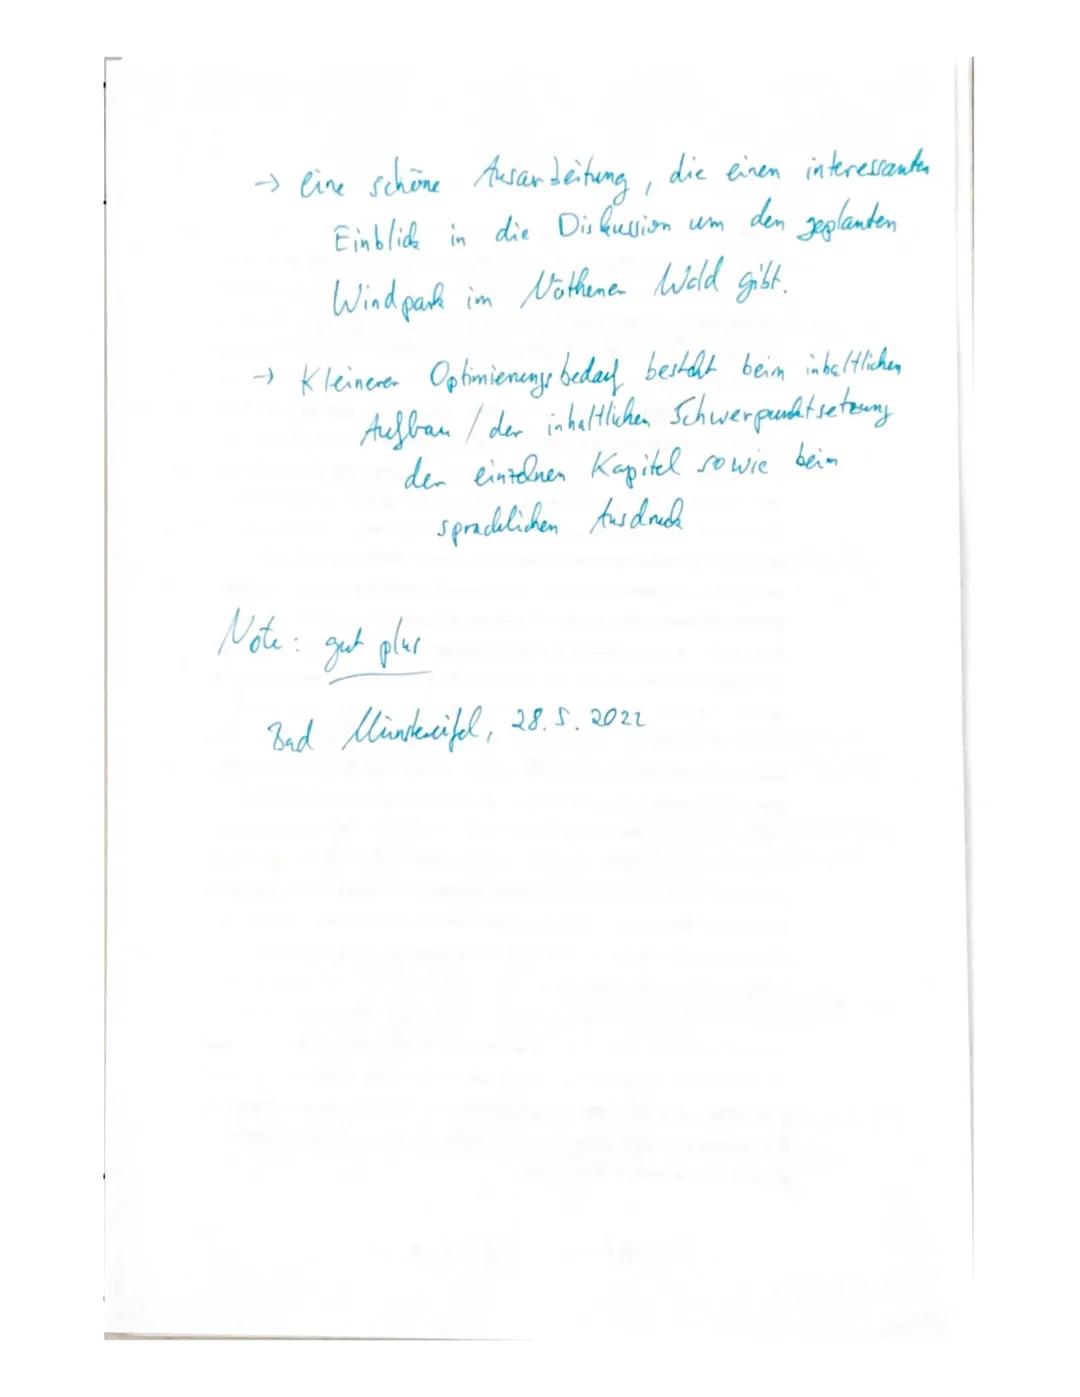 → eine schöne Ausarbeitung, die einen interessanten
Einblick in die Diskussion um den geplanten
Windpark im Nöthener Wald gibt.
→ Kleinerer Optimierungsbedarf besteht beim inhaltlichen
Aufbau / der inhaltlichen Schwerpunktsetzung
der einzelnen Kapitel sowie beim
sprachlichen Ausdruck
Note: gut plus
Bad Münstereifel, 28.5.2022